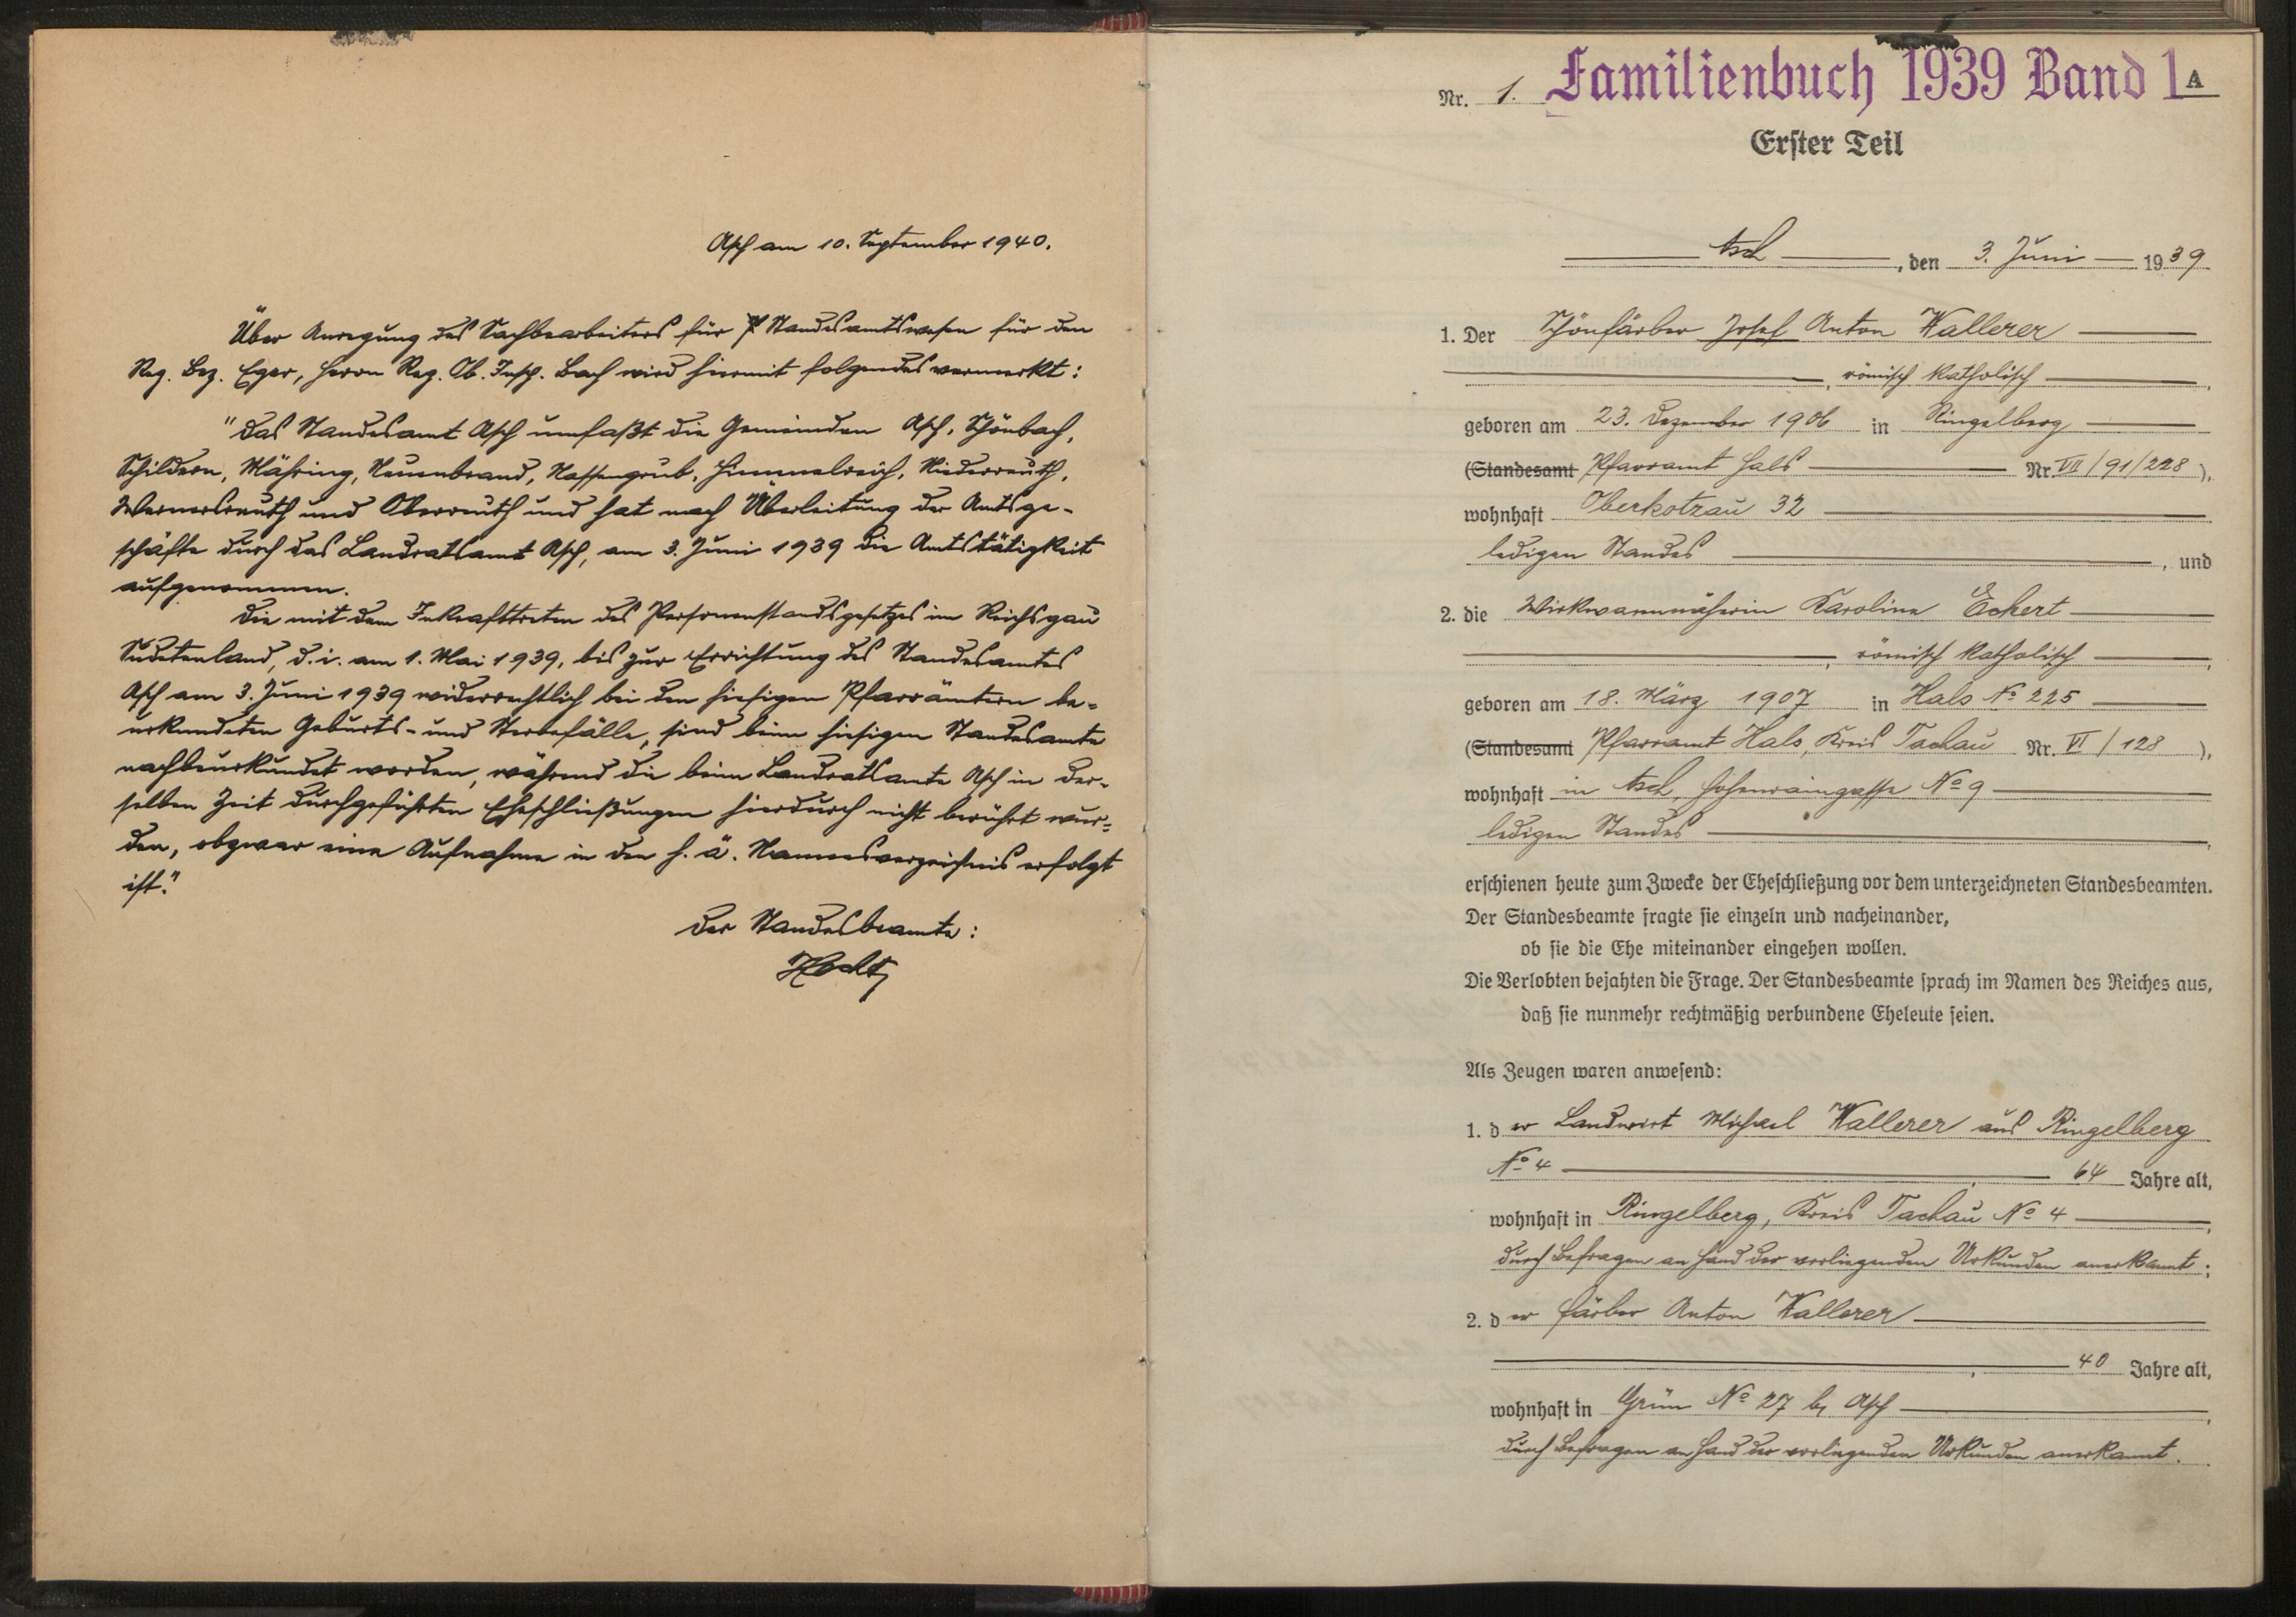 Asch am 10. September 1940.
Über Anregung des Sachbearbeiters für Standesamtswesen für den
Reg. Bez. Eger, Herrn Reg. Ob. Insp. Bach wird hiermit folgendes vermerkt:
"Das Standesamt Asch umfaßt die Gemeinden Asch, Schönbach,
Schildern, Mähring, Neuenbrand, Nassengrub, Himmelreich, Niederreuth,
Wernersreuth und Oberreuth und hat nach Überleitung der Amtsge-
schäfte durch das Landratsamt Asch, am 3. Juni 1939 die Amtstätigkeit
aufgenommen.
Die mit dem Inkrafttreten des Personenstandsgesetzes im Reichsgau
Sudetenland, d. i. am 1. Mai 1939, bis zur Errichtung des Standesamtes
Asch am 3. Juni 1939 widerrechtlich bei den hiesigen Pfarrämtern be-
urkundeten Geburts- und Sterbefälle, sind beim hiesigen Standesamte
nachbeurkundet worden, während die beim Landratsamte Asch in der-
selben Zeit durchgeführten Eheschließungen hierdurch nicht berührt wur-
den, obzwar eine Aufnahme in den h. ä. Namensverzeichnis erfolgt
ist."
Der Standesbeamte:
Nr. 1. Familienbuch 1939 Band 1 A
Erster Teil
Asch, den 3. Juni 1939
1. Der Schönfärber Josef Anton Wallerer
, römisch katholisch,
geboren am 23. Dezember 1906 in Ringelberg
(Standesamt Pfarramt Hals Nr. VII/91/228),
wohnhaft Oberkotzau 32
ledigen Standes, und
2. die Wirkwarennäherin Karoline Eckert
, römisch katholisch,
geboren am 18. März 1907 in Hals No 225
(Standesamt Pfarramt Hals, Kreis Tachau Nr. VI/128),
wohnhaft in Asch, Hohenraingasse No 9
ledigen Standes,
erschienen heute zum Zwecke der Eheschließung vor dem unterzeichneten Standesbeamten.
Der Standesbeamte fragte sie einzeln und nacheinander,
ob sie die Ehe miteinander eingehen wollen.
Die Verlobten bejahten die Frage. Der Standesbeamte sprach im Namen des Reiches aus,
daß sie nunmehr rechtmäßig verbundene Eheleute seien.
Als Zeugen waren anwesend:
1. der Landwirt Michael Wallerer aus Ringelberg
No 4, 64 Jahre alt,
wohnhaft in Ringelberg, Kreis Tachau No 4,
durch Befragen an Hand der vorliegenden Urkunden anerkannt;
2. der Färber Anton Wallerer
, 40 Jahre alt,
wohnhaft in Grün No 27 b. Asch,
durch Befragen an Hand der vorliegenden Urkunden anerkannt.